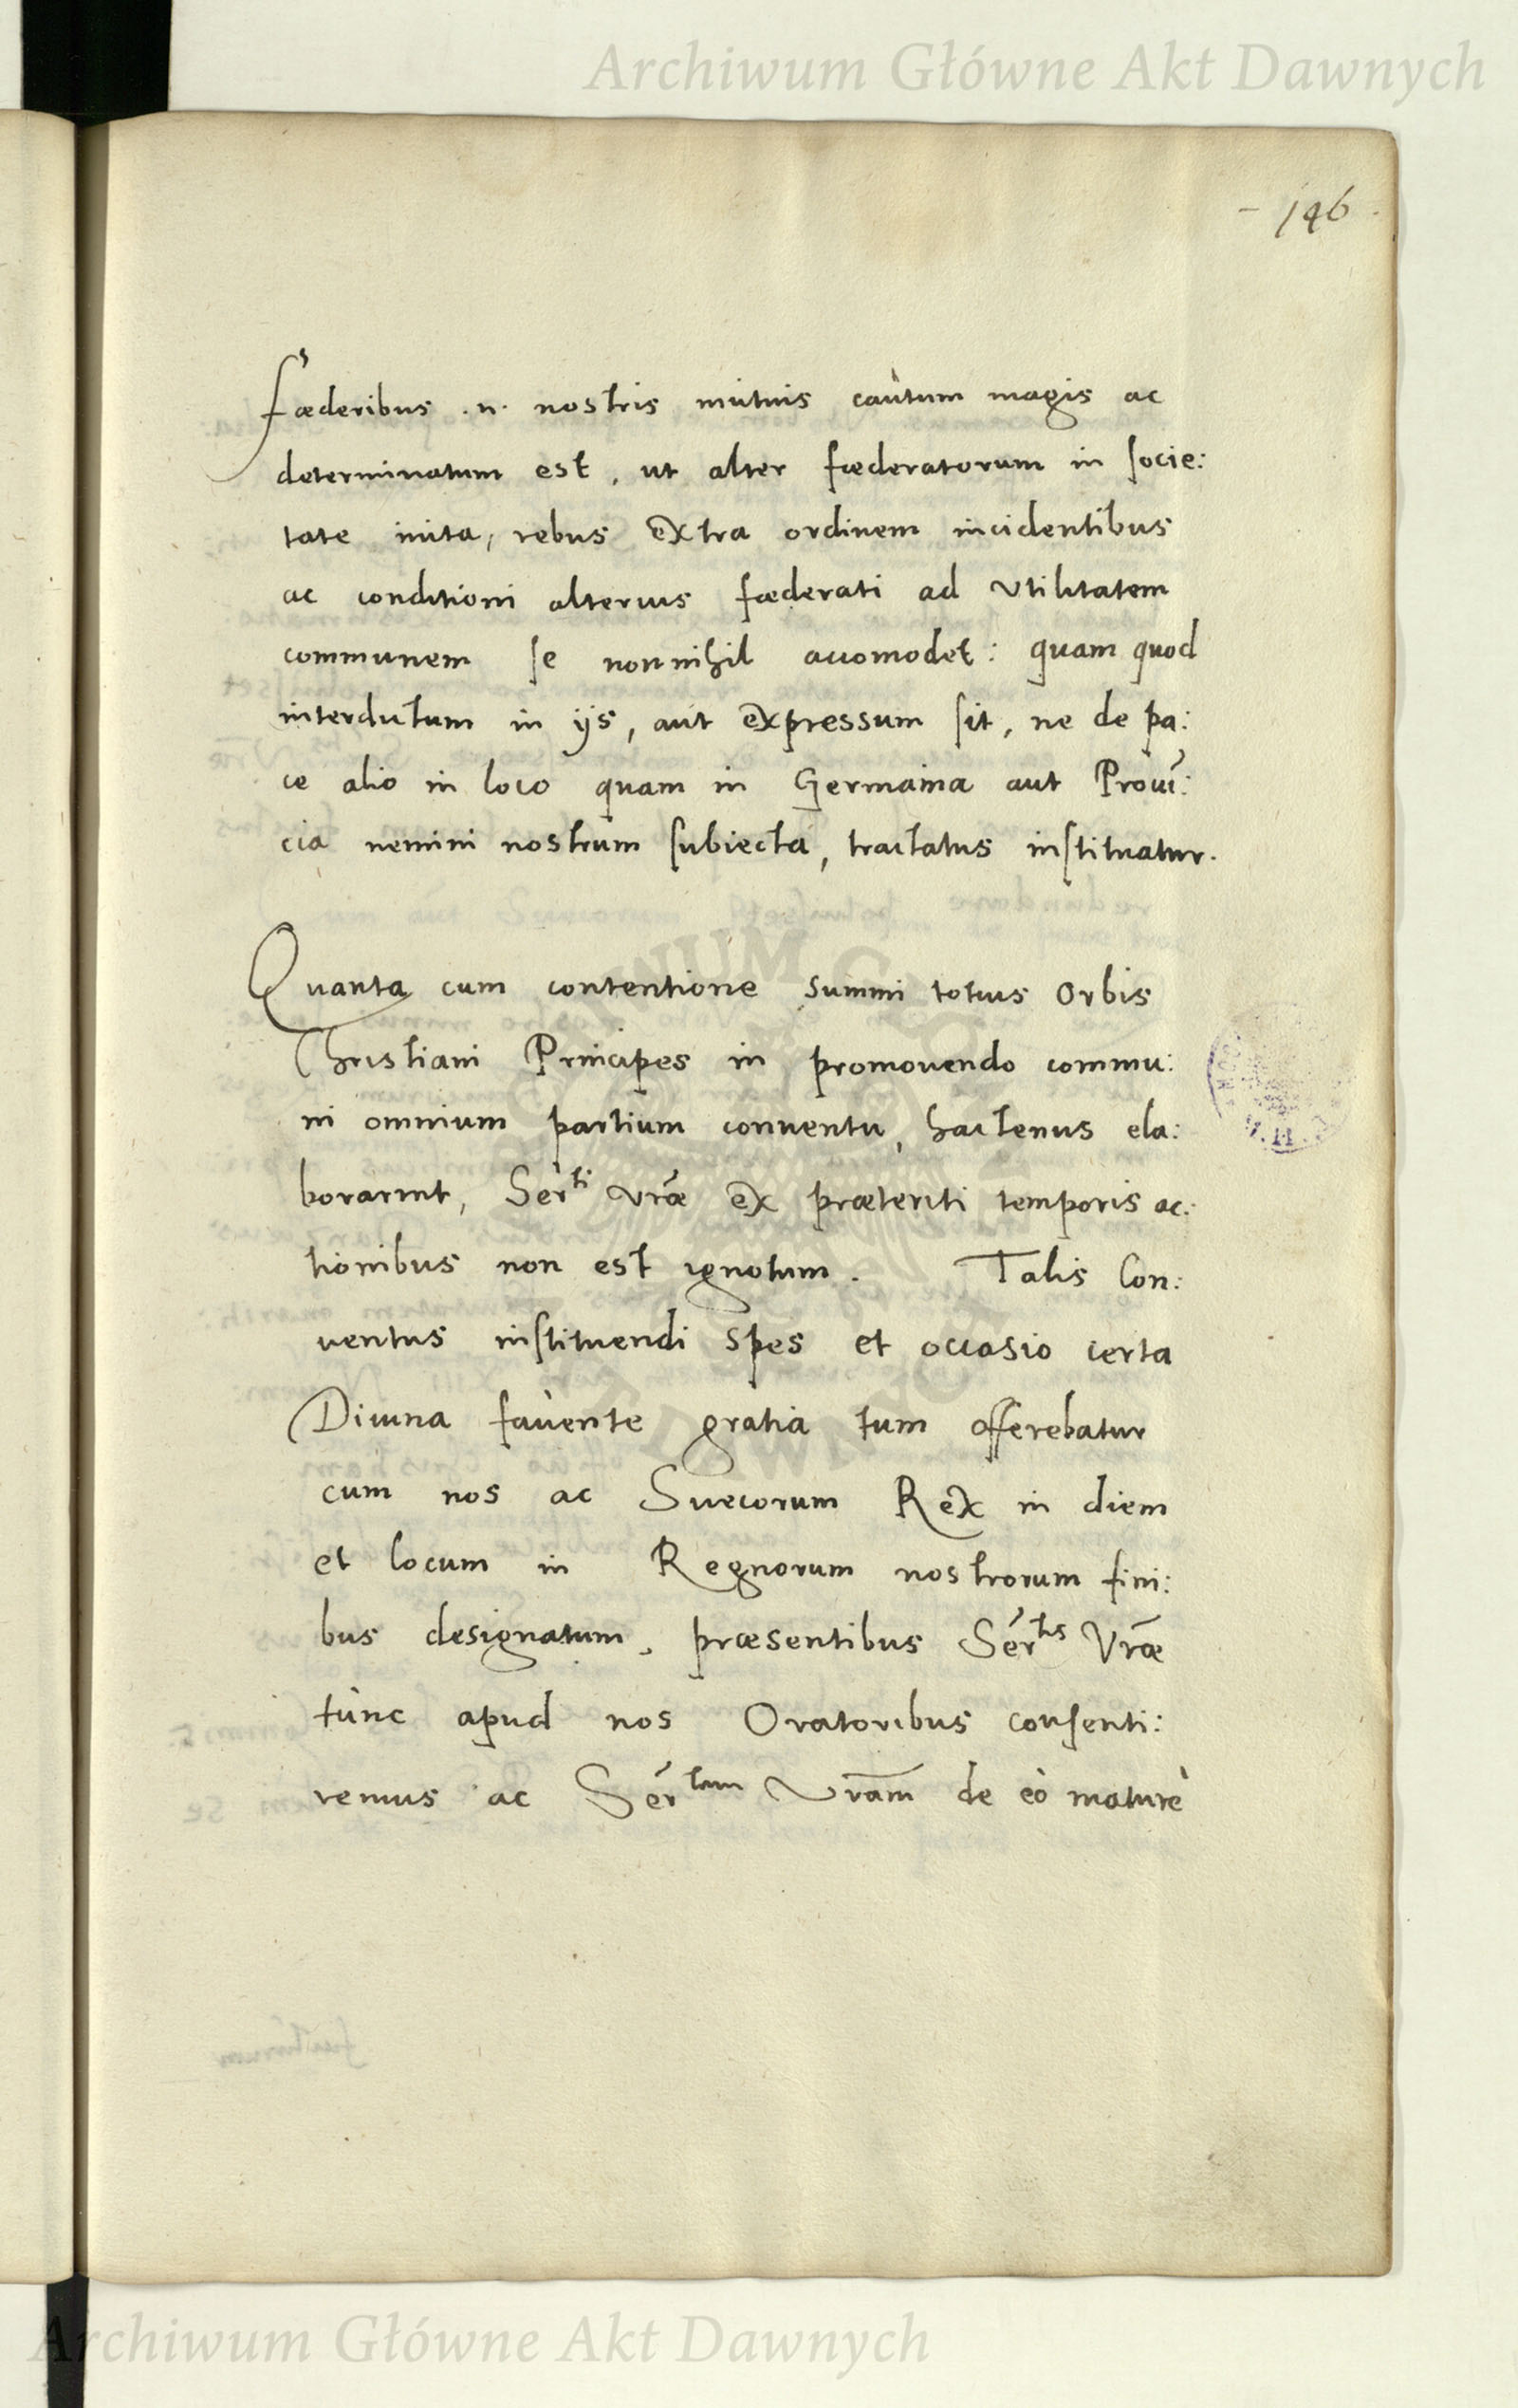 Archiwum Główne Akt Dawnych
- 146.
fœderibus .n. nostris mutuis cautum magis ac
determinatum est, ut alter fœderatorum in socie:
tate inita, rebus extra ordinem incidentibus
ac conditioni alterius fœderati ad Vtilitatem
communem se nonnihil accomodet: quam quod
interdictum in ijs, aut expressum sit, ne de pa:
ce alio in loco quam in Germania aut Prouī:
cia nemini nostrum subiecta, tractatus instituatur.
Quanta cum contentione summi totius Orbis
Christiani Principes in promouendo commu:
ni omnium partium conuentu, hactenus ela:
borarint, Serti vrāe ex præteriti temporis ac:
tionibus non est ignotum. Talis Con:
uentus instituendi spes et occasio certa
Diuina fauente gratia tum offerebatur
cum nos ac Suecorum Rex in diem
et locum in Regnorum nostrorum fini:
bus designatum, præsentibus Sertis Vrāe
tunc apud nos Oratoribus consenti:
remus ac Sertem Vram de eo maturè
Archiwum Główne Akt Dawnych